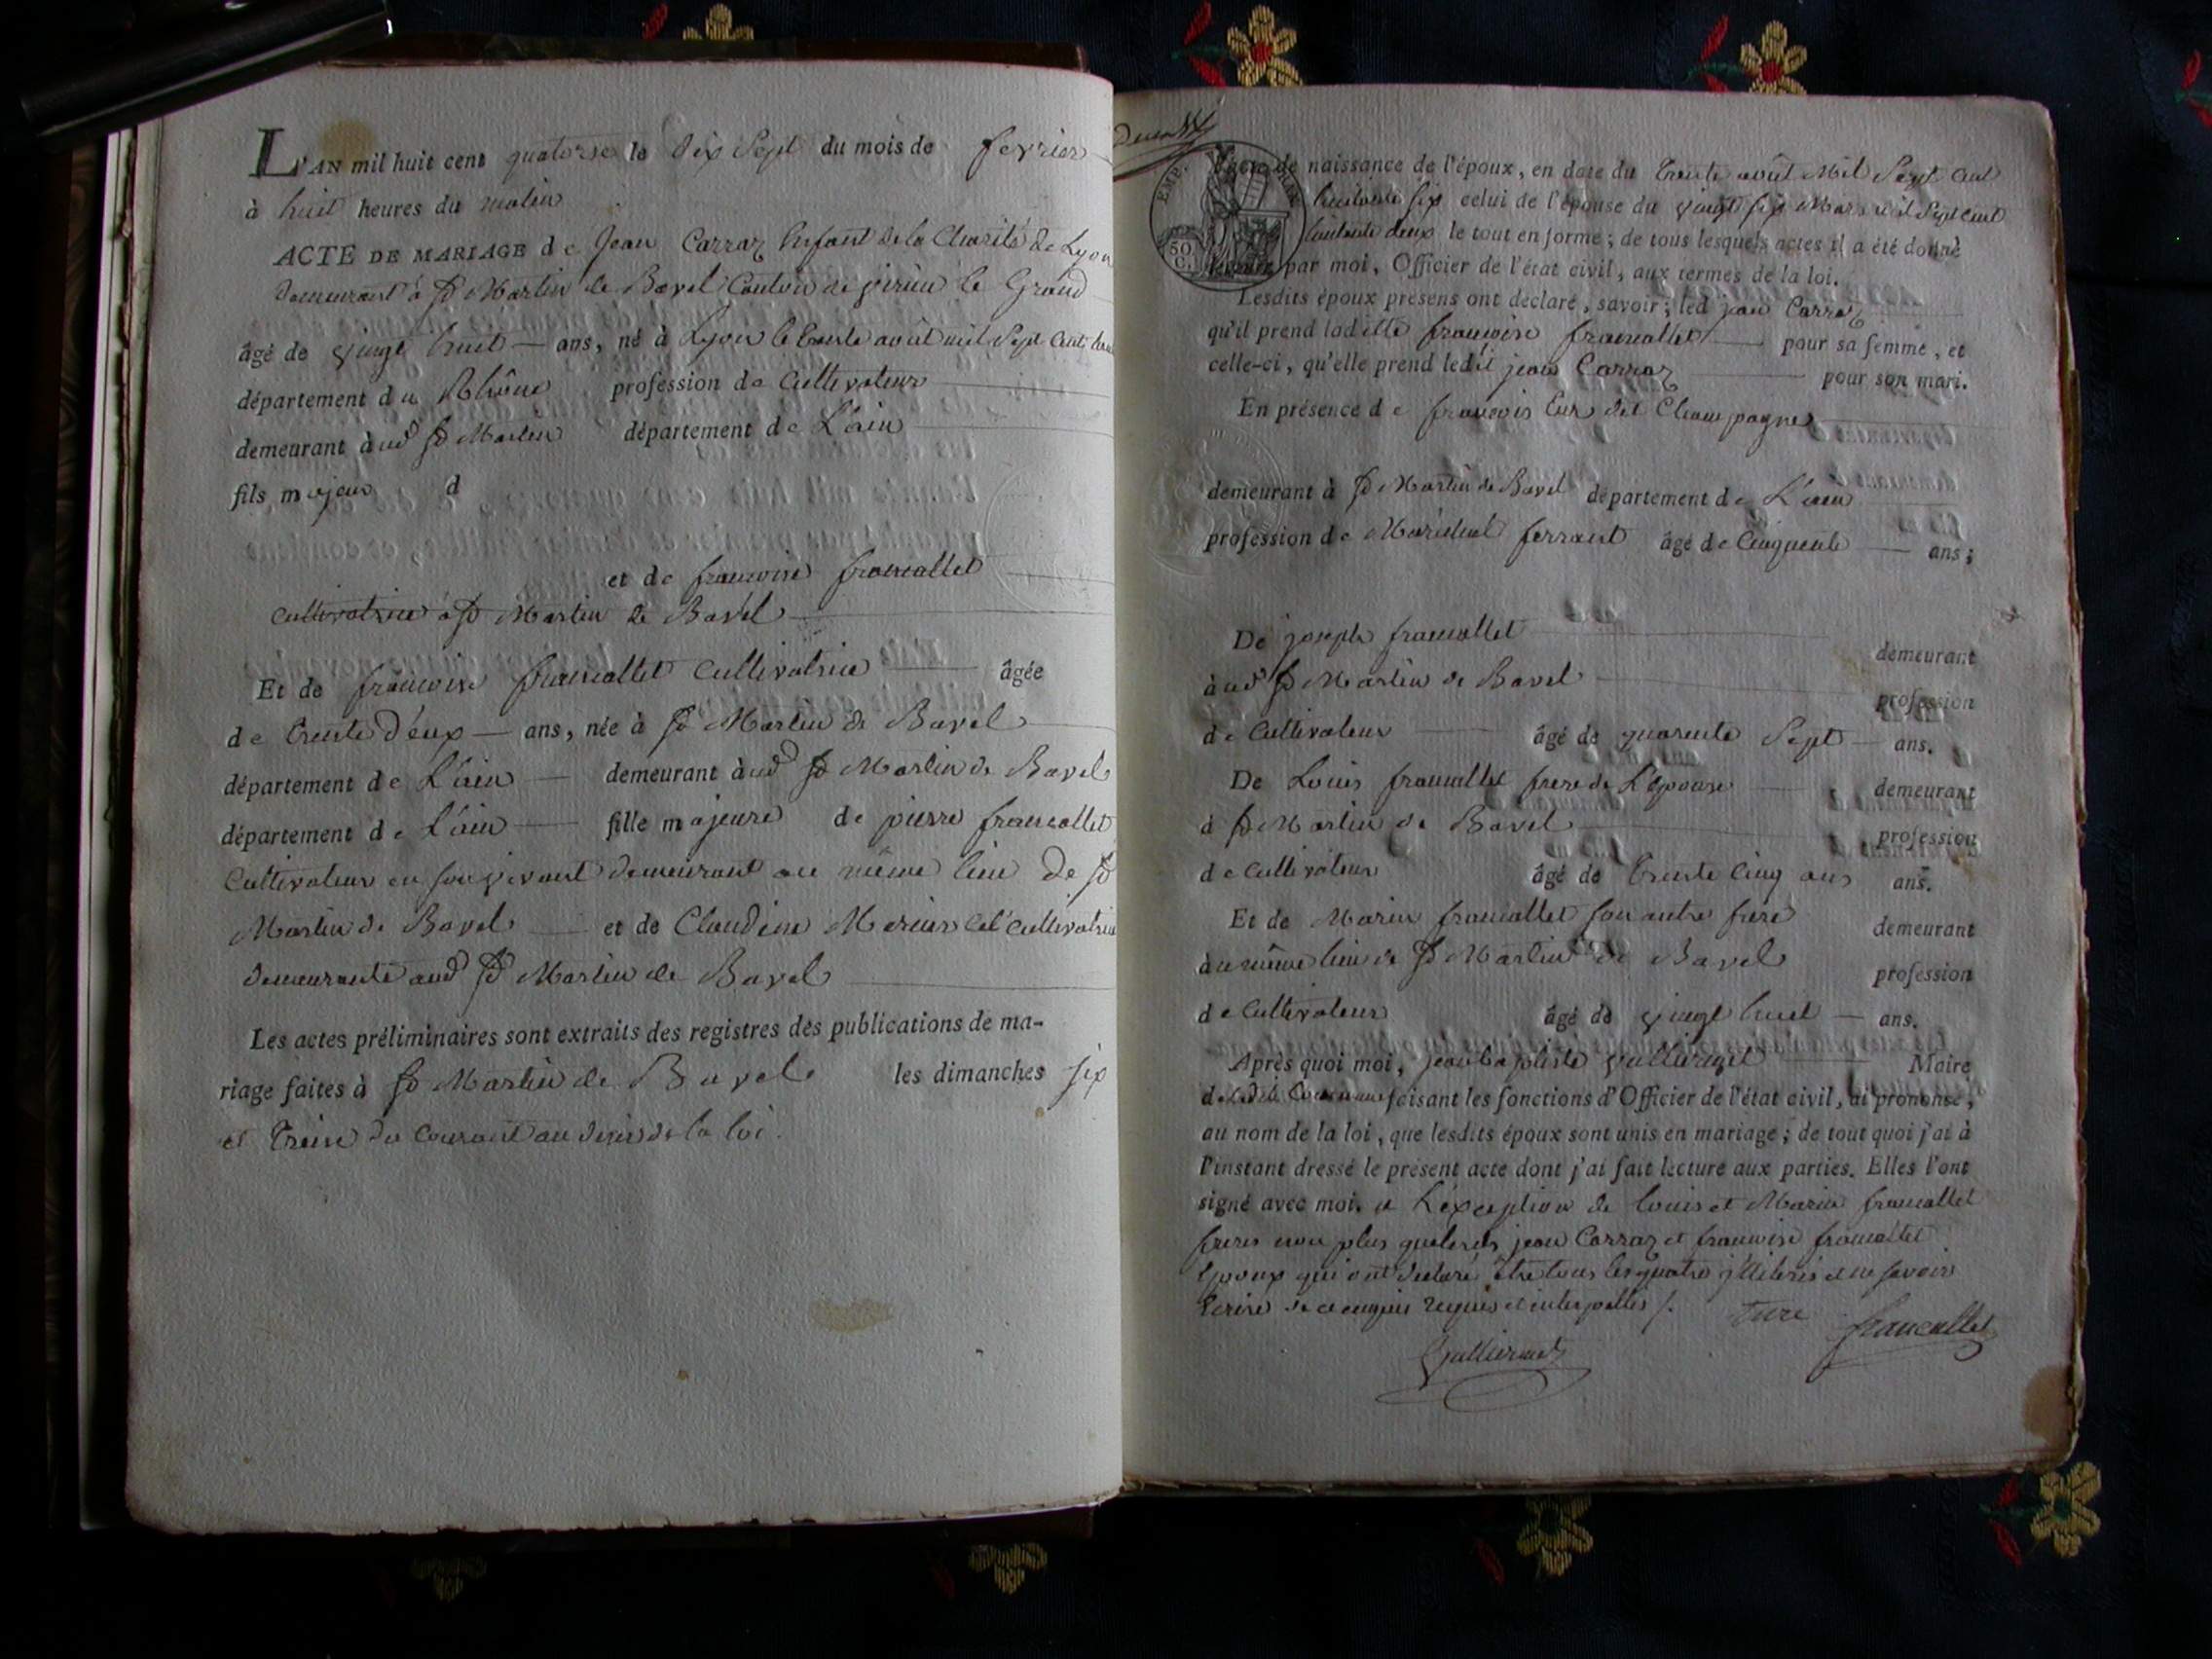 L'AN mil huit cent quatorze le dix Sept du mois de fevrier
à huit heures du matin
ACTE DE MARIAGE de Jean Carraz Enfant de la Charité de Lyon
demeurant à St Martin de Bavel Canton de virieu le Grand
âgé de vingt huit ans, né à Lyon le trente août mil Sept Cent
département du Rhône profession de Cultivateur
demeurant aud St Martin département de L'ain
fils majeur d
et de francoise francallet
Cultivatrice à St Martin de Bavel
Et de francoise francallet Cultivatrice âgée
de trente deux ans, née à St Martin de Bavel
département de L'ain demeurant aud St Martin de Bavel
département de L'ain fille majeure de pierre francallet
Cultivateur en son vivant demeurant au même lieu de St
Martin de Bavel et de Claudine Cultivatrice
demeurante aud St Martin de Bavel
Les actes préliminaires sont extraits des registres des publications de ma-
riage faites à St Martin de Bavel les dimanches six
et treize du Courant au desir de la loi.
EMP.
50 C.
de naissance de l'époux, en date du trente août Mil Sept Cent
huitante six celui de l'épouse du vingt six Mars mil Sept Cent
huitante deux le tout en forme; de tous lesquels actes il a été donné
lecture par moi, Officier de l'état civil, aux termes de la loi.
Lesdits époux présens ont déclaré, savoir; led jean Carraz
qu'il prend ladite francoise francallet pour sa femme, et
celle-ci, qu'elle prend ledit jean Carraz pour son mari.
En présence de francois dit Champagne
demeurant à St Martin de Bavel département de L'ain
profession de Maréchal ferrant âgé de Cinquante ans;
De joseph francallet demeurant
aud St Martin de Bavel profession
de Cultivateur âgé de quarante Sept ans.
De Louis francallet frere de L'épouse demeurant
à St Martin de Bavel profession
de Cultivateur âgé de trente Cinq ans ans.
Et de Marin francallet son autre frere demeurant
au même lieu de St Martin de Bavel profession
de Cultivateur âgé de vingt huit ans.
Après quoi moi, jean baptiste Maire
de ladite Commune faisant les fonctions d'Officier de l'état civil, ai prononcé,
au nom de la loi, que lesdits époux sont unis en mariage; de tout quoi j'ai à
l'instant dressé le présent acte dont j'ai fait lecture aux parties. Elles l'ont
signé avec moi. a L'exception de Louis et Marin francallet
freres non plus que lesdits jean Carraz et francoise francallet
Epoux qui ont déclaré être tous les quatre illiterés et ne savoir
Ecrire de ce enquis requis et interpellés /.
francallet